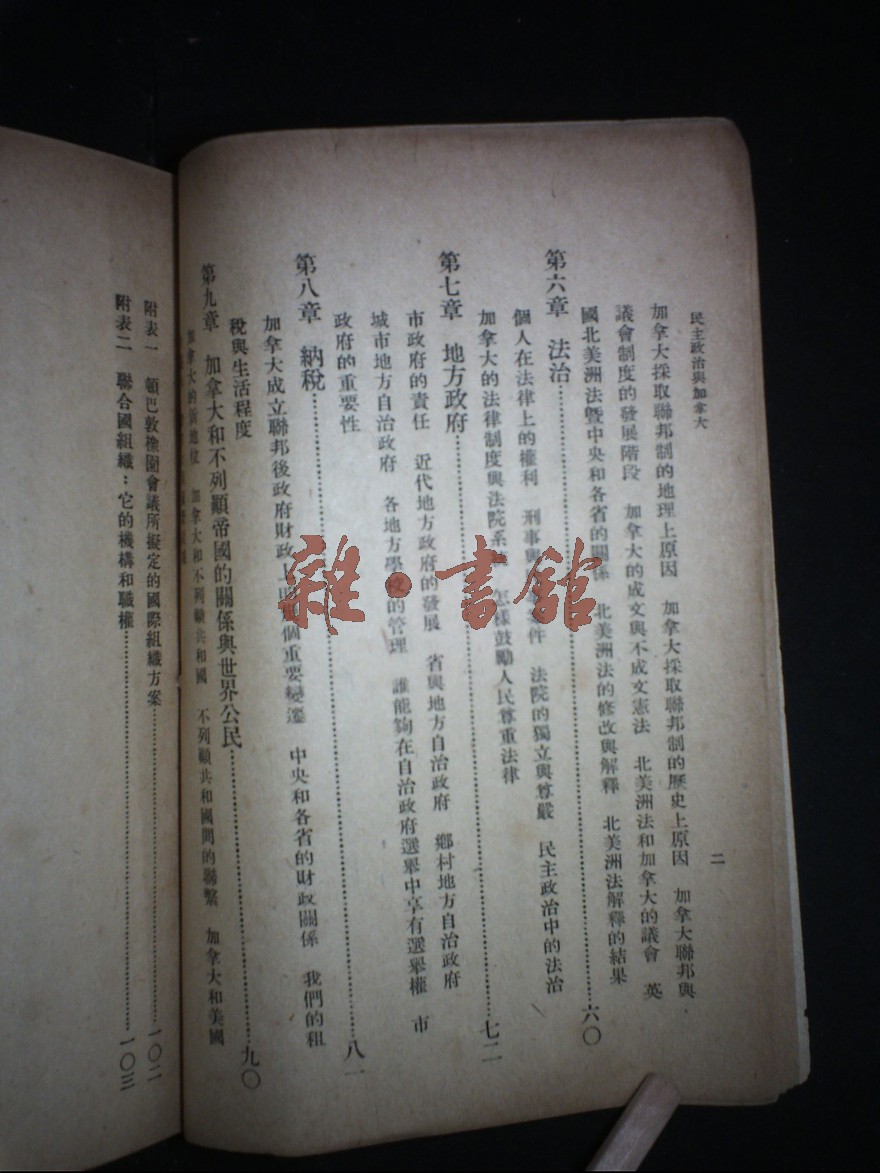 民主政治與加拿大
二
加拿大採取聯邦制的地理上原因 加拿大採取聯邦制的歷史上原因 加拿大聯邦與
議會制度的發展階段 加拿大的成文與不成文憲法 北美洲法和加拿大的議會 英
國北美洲法暨中央和各省的關係 北美洲法的修改與解釋 北美洲法解釋的結果
第六章 法治……六〇
個人在法律上的權利 刑事與 件 法院的獨立與尊嚴 民主政治中的法治
加拿大的法律制度與法院系 怎樣鼓勵人民尊重法律
第七章 地方政府……七二
市政府的責任 近代地方政府的發展 省與地方自治政府 鄉村地方自治政府
城市地方自治政府 各地方學校的管理 誰能夠在自治政府選舉中享有選舉權 市
政府的重要性
第八章 納稅……八一
加拿大成立聯邦後政府財政上 個重要變遷 中央和各省的財政關係 我們的租
稅與生活程度
第九章 加拿大和不列顛帝國的關係與世界公民……九〇
加拿大的新地位 加拿大和不列顛共和國 不列顛共和國間的聯繫 加拿大和美國
附表一 頓巴敦橡園會議所擬定的國際組織方案……一〇二
附表二 聯合國組織：它的機構和職權……一〇三
雜·書館